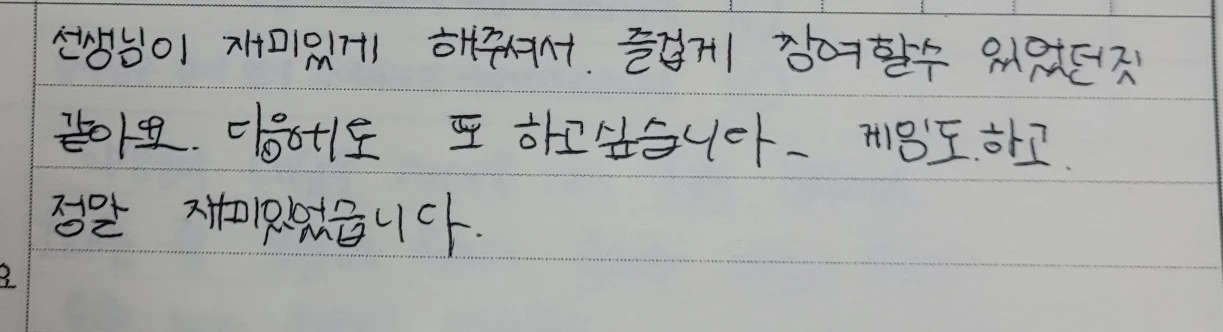 선생님이 재미있게 해주셔서. 즐겁게 참여할수 있었던짓
같아요. 다음에도 또 하고싶습니다. 게임도.하고.
정말 재미있었습니다.
요